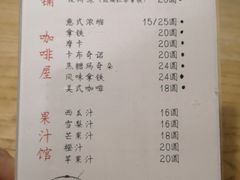 铺
20圆
咖啡屋
意式浓咖 15/25圆
拿铁 20圆
摩卡 20圆
卡布奇诺 20圆
焦糖玛奇朵 24圆
风味拿铁 24圆
美式咖啡 18圆
果汁馆
西瓜汁 16圆
雪梨汁 16圆
芒果汁 18圆
橙汁 20圆
苹果汁 20圆